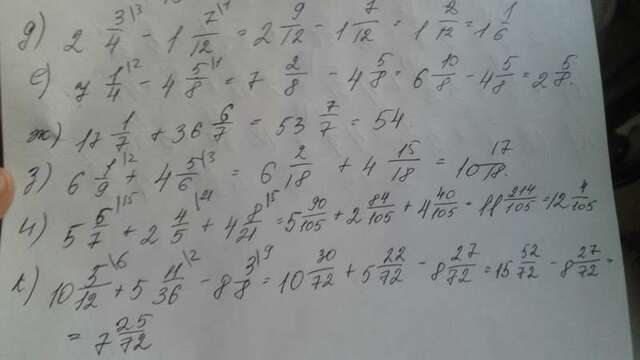 д) 2 3/4\3 − 1 7/12\1 = 2 9/12 − 1 7/12 = 1 2/12 = 1 1/6
е) 7 1/4\2 − 4 5/8\1 = 7 2/8 − 4 5/8 = 6 10/8 − 4 5/8 = 2 5/8.
ж) 17 1/7 + 36 6/7 = 53 7/7 = 54.
з) 6 1/9\2 + 4 5/6\3 = 6 2/18 + 4 15/18 = 10 17/18.
и) 5 5/7\15 + 2 4/5\21 + 4 8/21\5 = 5 90/105 + 2 84/105 + 4 40/105 = 11 214/105 = 12 4/105
к) 10 5/12\6 + 5 11/36\2 − 8 3/8\9 = 10 30/72 + 5 22/72 − 8 27/72 = 15 52/72 − 8 27/72 =
= 7 25/72